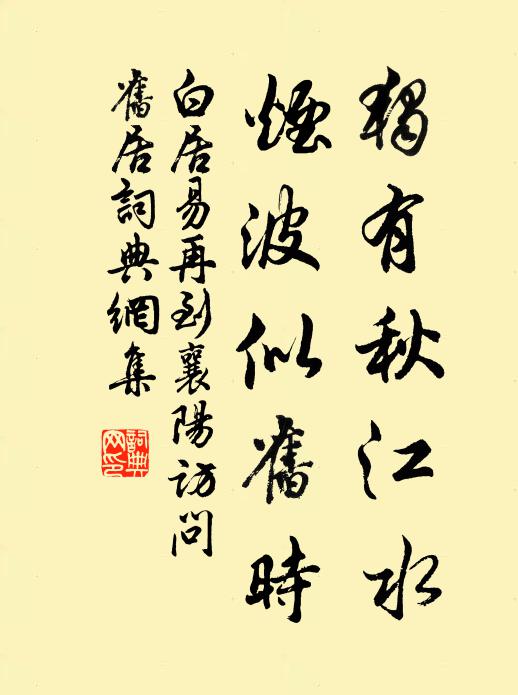 獨有秋江水
煙波似舊時
白居易再到襄陽访問
舊居詞典網集
詞典
网印